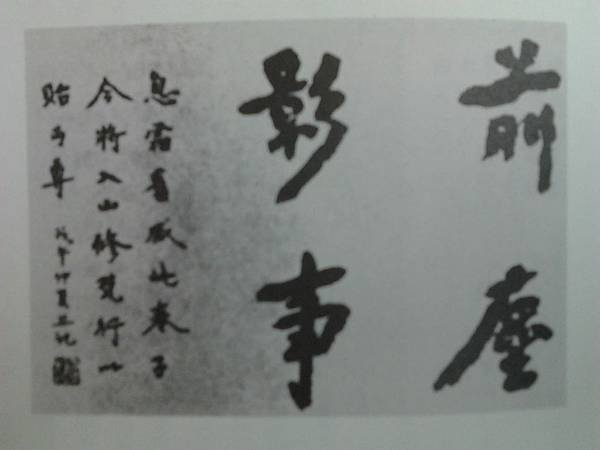 前塵
影事
息霜舊藏此卷子
今將入山修梵行以
貽丏尊 戊午仲夏並記